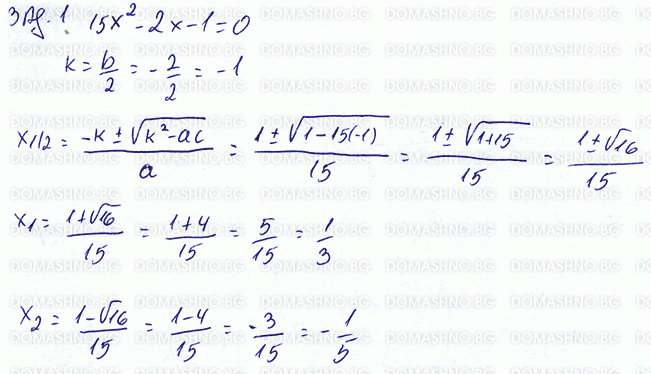 Зад. 1 15x² - 2x - 1 = 0
k = b/2 = - 2/2 = - 1
x1/2 = (-k ± √(k² - ac))/a = (1 ± √(1 - 15(-1)))/15 = (1 ± √(1+15))/15 = (1 ± √16)/15
x₁ = (1+√16)/15 = (1+4)/15 = 5/15 = 1/3
x₂ = (1-√16)/15 = (1-4)/15 = - 3/15 = - 1/5
DOMASHNO.BG